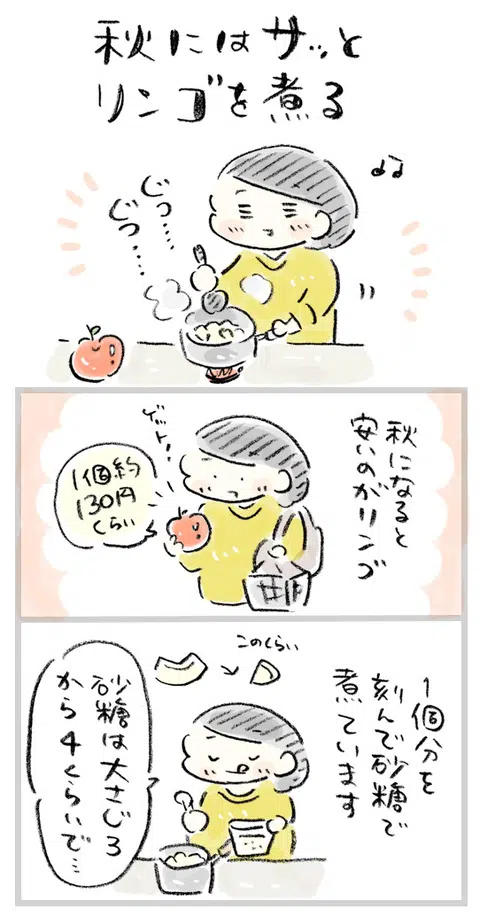 秋にはサッと
リンゴを煮る
じっ…
じっ…
秋になると
安いのがリンゴ
ゲット!
1個約
130円
くらい
1個分を
刻んで砂糖で
煮ています
このくらい
砂糖は大さじ3
から4くらいで…